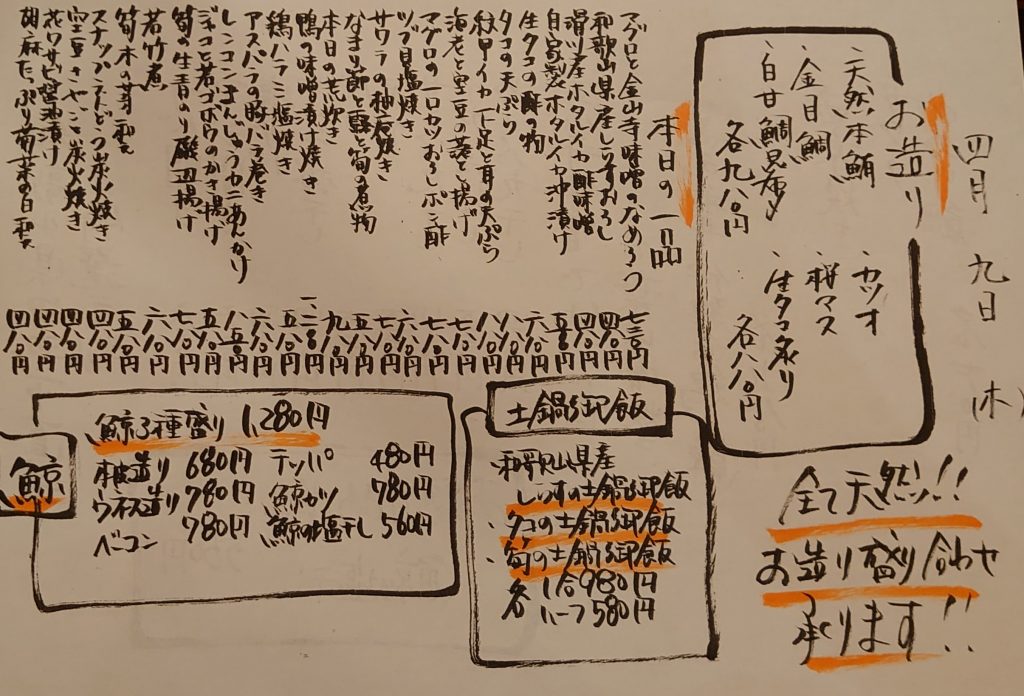 四月九日(木)
お造り
・天然本鮪
・金目鯛
・白甘鯛昆布〆
各九八〇円
・カツオ
・桜マス
・生タコ炙り
各八八〇円
全て天然!!
お造り盛り合わせ
承ります!!
本日の一品
マグロと金山寺味噌のなめろう 七三〇円
和歌山県産しらすおろし 四八〇円
滑川産ホタルイカ酢味噌
自家製ホタルイカ沖漬け
生タコの酢の物
タコの天ぷら
紋甲イカ下足と耳の天ぷら
海老と空豆の落とし揚げ
マグロの一口カツおろしポン酢
ツブ貝塩焼き
サワラの柚庵焼き
なまり節と蕗と筍の煮物
本日の荒炊き
鴨の味噌漬け焼き
鶏ハラミ塩焼き
アスパラの豚バラ巻き
レンコンまんじゅうカニあんかけ
ジャコと若ゴボウのかき揚げ
筍の生青のり磯辺揚げ
若竹煮
筍木の芽和え
スナップえんどう炭火焼き 四八〇円
空豆さやごと炭火焼き 四八〇円
花ワサビ醤油漬け 四八〇円
胡麻たっぷり菊菜の白和え 四八〇円
土鍋御飯
・和歌山県産
しらすの土鍋御飯
・タコの土鍋御飯
・筍の土鍋御飯
各 1合980円
ハーフ580円
鯨
鯨3種盛り 1,280円
本皮造り 680円
ウネス造り 780円
ベーコン 780円
テッパ 480円
鯨カツ 780円
鯨の塩干し 560円